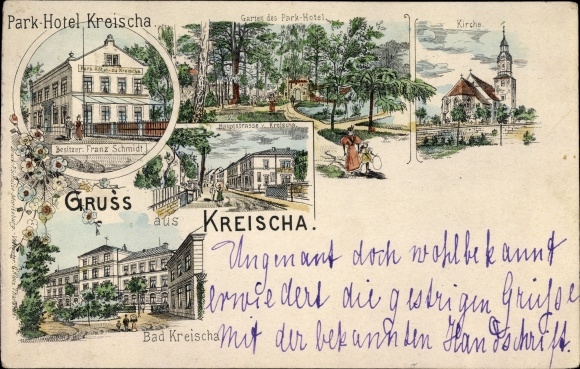 Park-Hotel Kreischa
Garten des Park-Hotel
Kirche
Park Hôtel zu Kreischa
Besitzer: Franz Schmidt
Hauptstrasse v. Kreischa
Gruss
aus
Kreischa.
Bad Kreischa
Ungenant doch wohlbekannt
erwiedert die gestrigen Grüße
Mit der bekannten Handschrift.